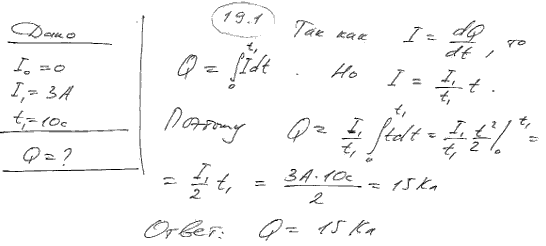 19.1
Дано
I₀ = 0
I₁ = 3A
t₁ = 10c
Q = ?
Так как I = dQ/dt, то
Q = ∫₀^t₁ Idt. Но I = I₁/t₁ t.
Поэтому Q = I₁/t₁ ∫₀^t₁ tdt = I₁/t₁ t²/2 |₀^t₁ =
= I₁/2 t₁ = 3A·10c/2 = 15 Кл
Ответ: Q = 15 Кл